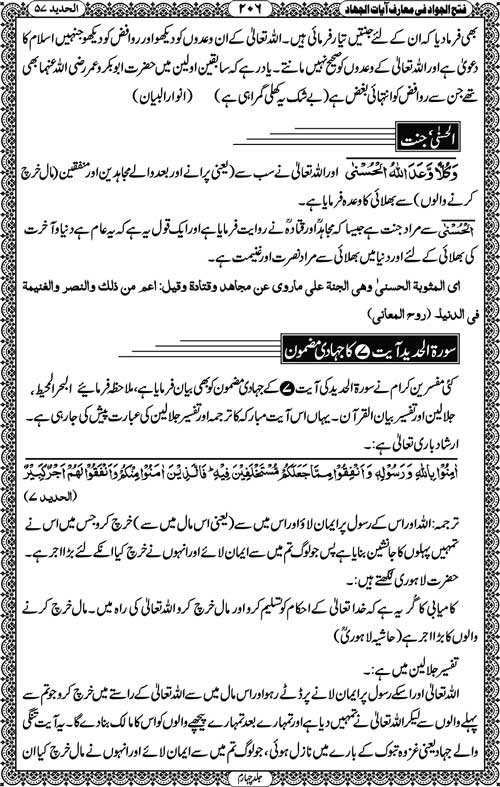 فتح الجواد فی معارف آیات الجهاد
۲۰۶
الحدید ۵۷
بھی فرمادیا کہ ان کے لئے جنتیں تیار فرمائی ہیں۔ اللہ تعالیٰ کے ان وعدوں کو دیکھو اور روافض کو دیکھو جنہیں اسلام کا
دعویٰ ہے اور اللہ تعالیٰ کے وعدوں کو صحیح نہیں مانتے۔ یاد رہے کہ سابقین اولین میں حضرت ابوبکر و عمر رضی اللہ عنہما بھی
تھے جن سے روافض کو انتہائی بغض ہے (بے شک یہ کھلی گمراہی ہے) (انوار البیان)
الحسنیٰ، جنت
وَكُلًّا وَّعَدَ اللّٰهُ الْحُسْنٰى اور اللہ تعالیٰ نے سب سے (یعنی پرانے اور بعد والے مجاہدین اور منفقین (مال خرچ
کرنے والوں) سے بھلائی کا وعدہ فرمایا ہے۔
اَلْحُسْنٰى سے مراد جنت ہے جیسا کہ مجاہدؒ اور قتادہؒ نے روایت فرمایا ہے اور ایک قول یہ ہے کہ یہ عام ہے دنیا و آخرت
کی بھلائی کے لئے اور دنیا میں بھلائی سے مراد نصرت اور غنیمت ہے۔
ای المثوبة الحسنیٰ وهی الجنة علی ماروی عن مجاهد وقتادة وقیل: اعم من ذلك والنصر والغنیمة
فی الدنیا۔ (روح المعانی)
سورۃ الحدید آیت ۷ کا جہادی مضمون
کئی مفسرین کرام نے سورۃ الحدید کی آیت ۷ کے جہادی مضمون کو بھی بیان فرمایا ہے، ملاحظہ فرمائیے البحر المحیط،
جلالین اور تفسیر بیان القرآن۔ یہاں اس آیت مبارکہ کا ترجمہ اور تفسیر جلالین کی عبارت پیش کی جارہی ہے۔
ارشاد باری تعالیٰ ہے:۔
اٰمِنُوْا بِاللّٰهِ وَرَسُوْلِهٖ وَاَنْفِقُوْا مِمَّا جَعَلَكُمْ مُّسْتَخْلَفِيْنَ فِيْهِ ؕ فَالَّذِيْنَ اٰمَنُوْا مِنْكُمْ وَاَنْفَقُوْا لَهُمْ اَجْرٌ كَبِيْرٌ
(الحدید ۷)
ترجمہ: اللہ اور اس کے رسول پر ایمان لاؤ اور اس میں سے (یعنی اس مال میں سے) خرچ کرو جس میں اس نے
تمہیں پہلوں کا جانشین بنایا ہے پس جو لوگ تم میں سے ایمان لائے اور انہوں نے خرچ کیا انکے لئے بڑا اجر ہے۔
حضرت لاہوری لکھتے ہیں:۔
کامیابی کا گر یہ ہے کہ خدا تعالیٰ کے احکام کو تسلیم کرو اور مال خرچ کرو اللہ تعالیٰ کی راہ میں۔ مال خرچ کرنے
والوں کا بڑا اجر ہے (حاشیہ لاہوریؒ)
تفسیر جلالین میں ہے:۔
اللہ تعالیٰ اور اسکے رسول پر ایمان لانے پر ڈٹے رہو اور اس مال میں سے اللہ تعالیٰ کے راستے میں خرچ کرو جو تم سے
پہلے والوں سے لیکر اللہ تعالیٰ نے تمہیں دیا ہے اور تمہارے بعد تمہارے پیچھے والوں کو اس کا مالک بنا دے گا۔ یہ آیت تنگی
والے جہاد یعنی غزوہ تبوک کے بارے میں نازل ہوئی، جو لوگ تم میں سے ایمان لائے اور انہوں نے مال خرچ کیا ان
جلد چہارم